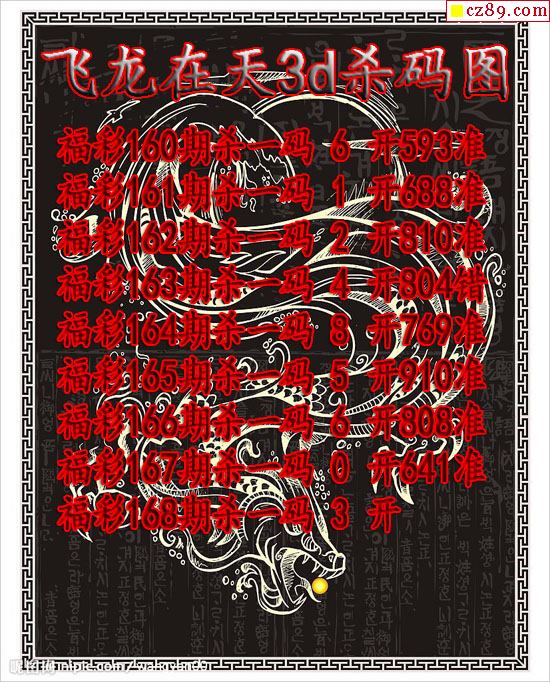 cz89.com
飞龙在天3d杀码图
福彩160期杀一码 6 开593准
福彩161期杀一码 1 开688准
福彩162期杀一码 2 开810准
福彩163期杀一码 4 开804错
福彩164期杀一码 8 开769准
福彩165期杀一码 5 开910准
福彩166期杀一码 6 开808准
福彩167期杀一码 0 开641准
福彩168期杀一码 3 开